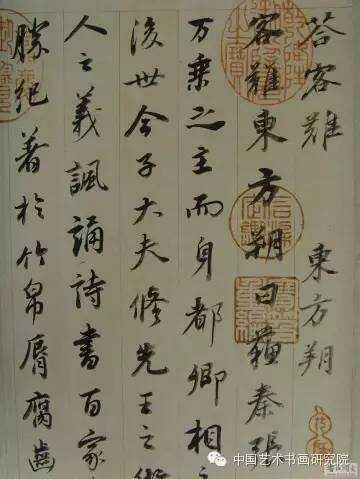 答客難 東方朔
客難東方朔曰蘇秦張
万乘之主而身都卿相之
後世今子大夫修先王之術
人之義諷誦詩書百家
勝紀著於竹帛脣腐齒
中国艺术书画研究院